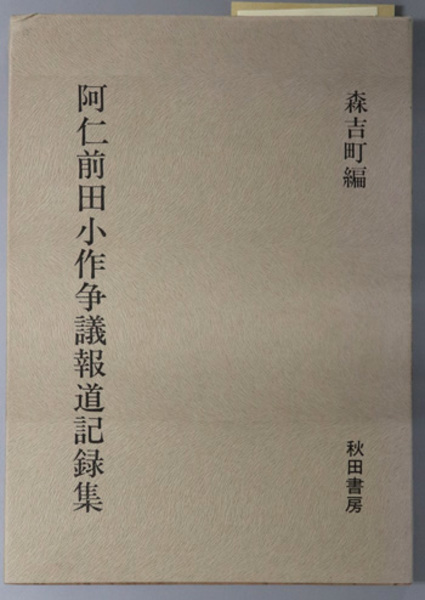 森吉町編
阿仁前田小作争議報道記録集
秋田書房